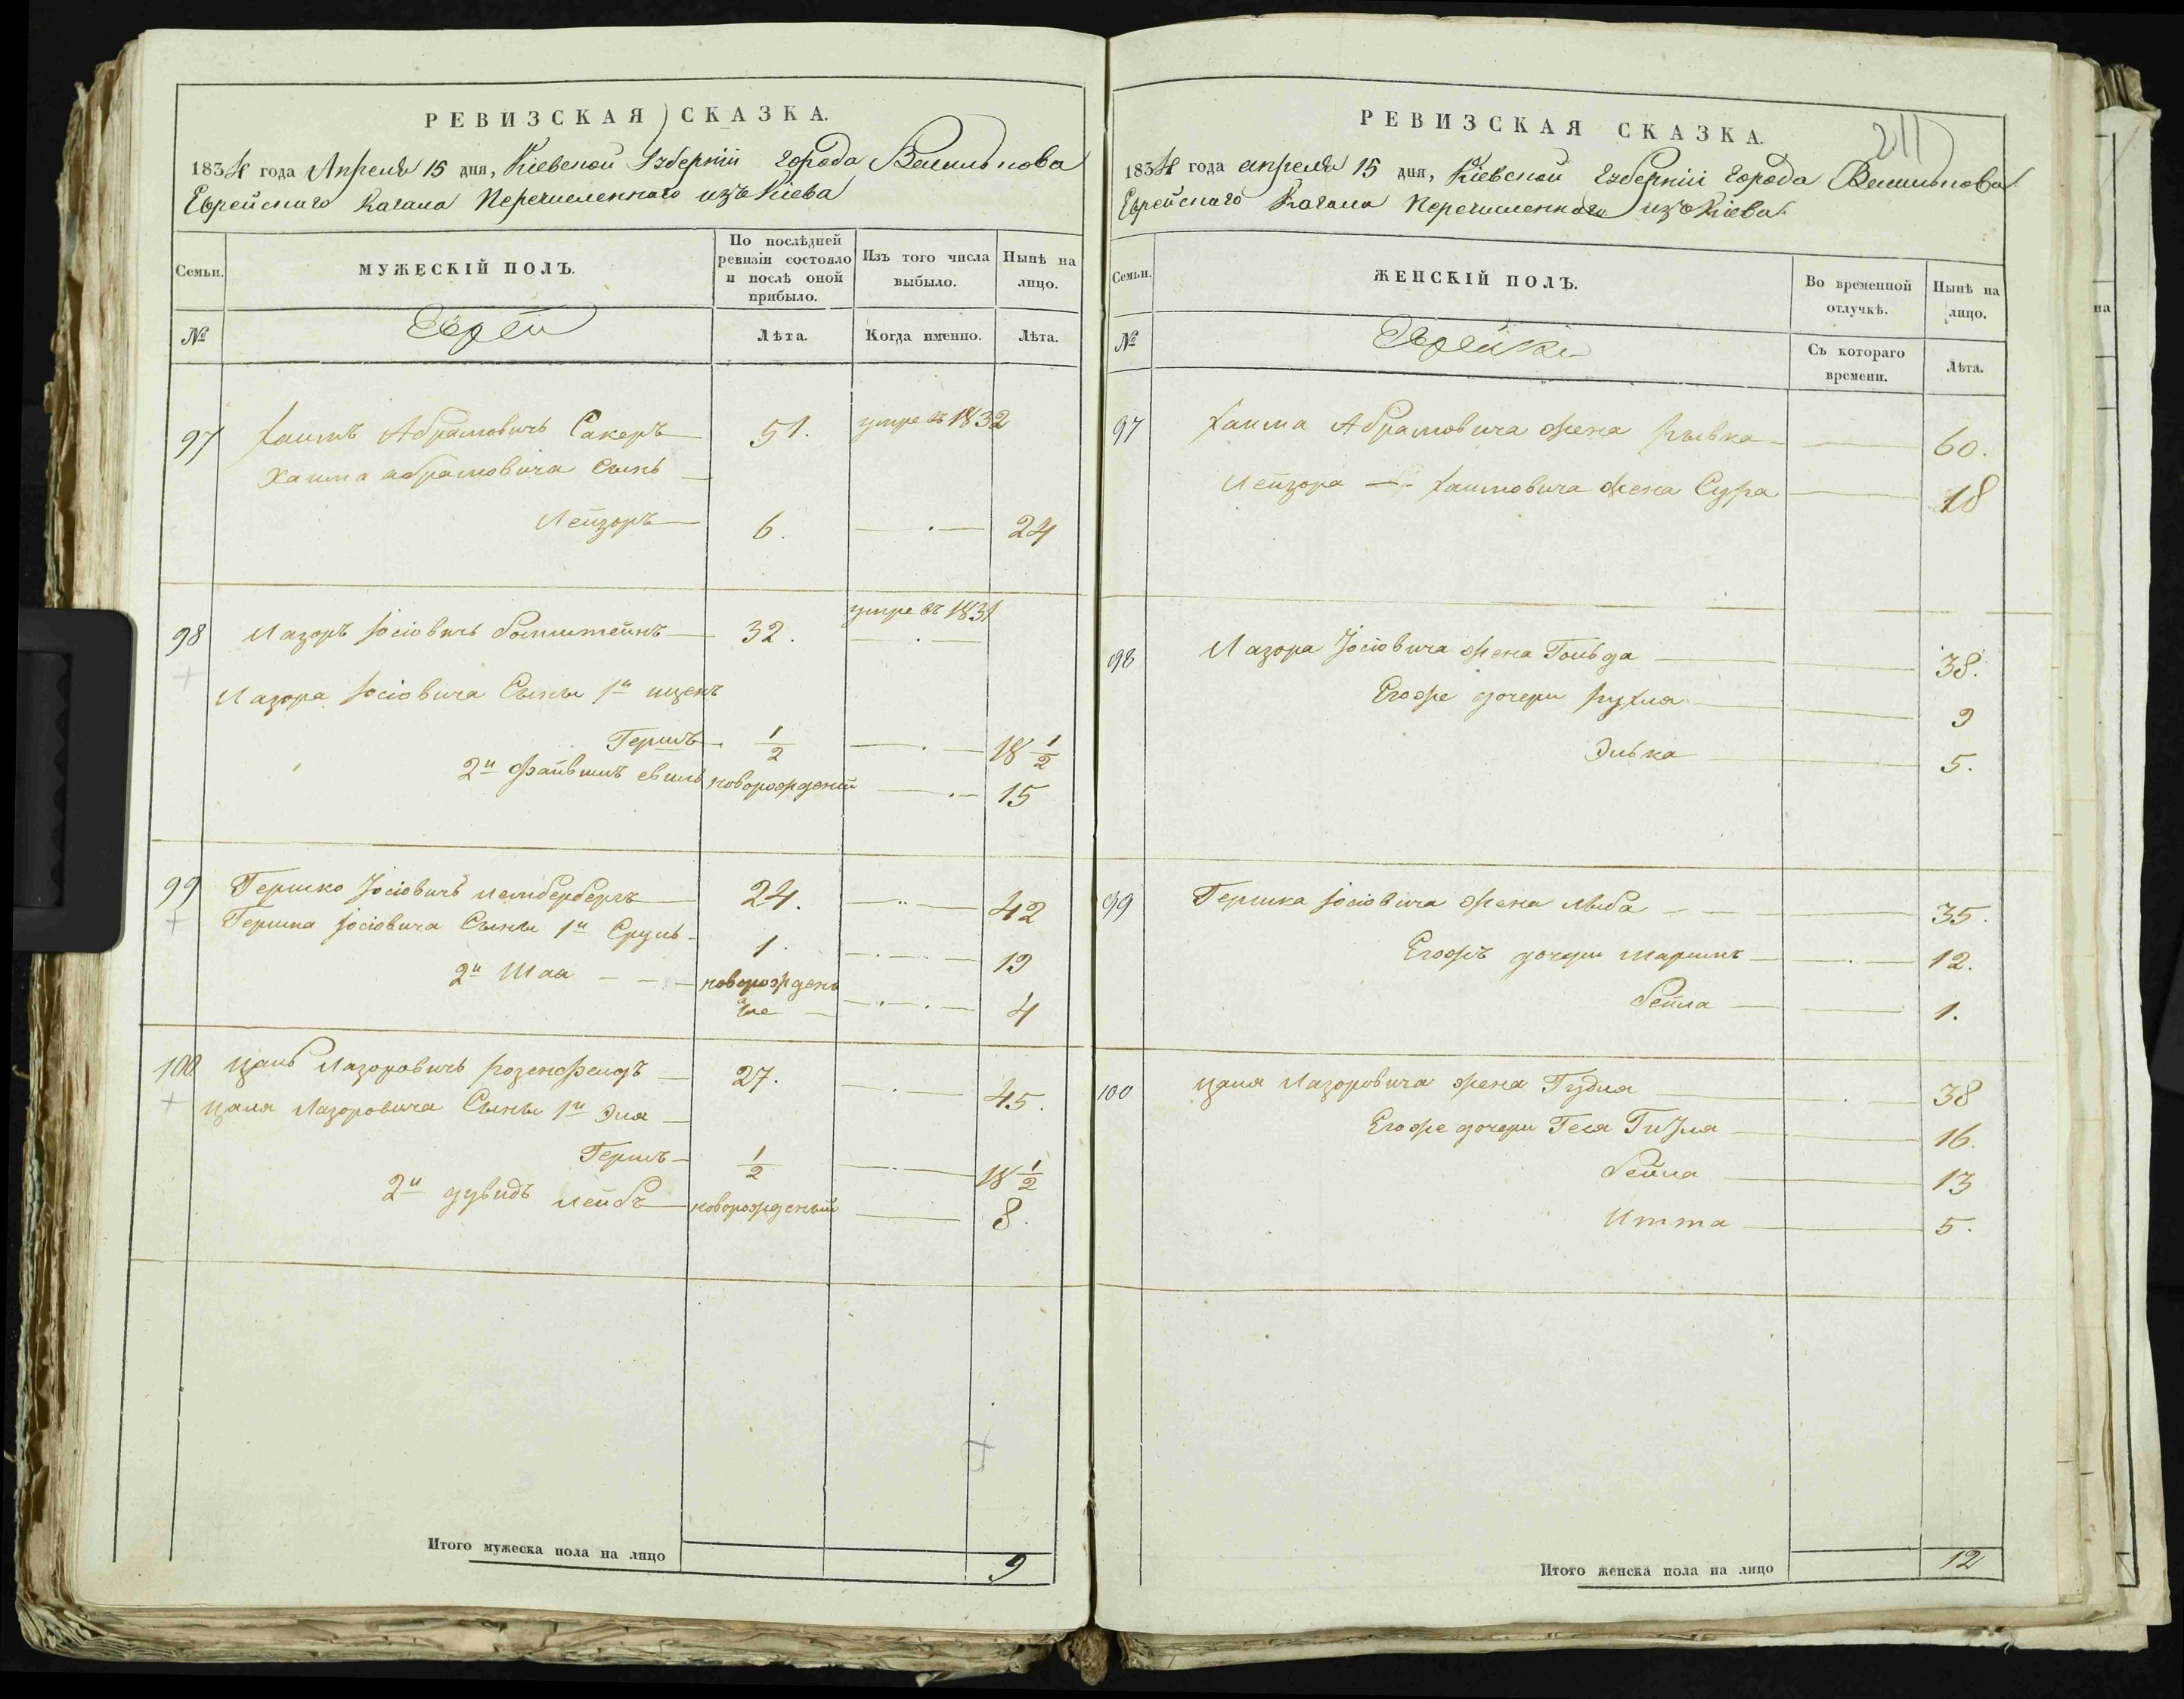 РЕВИЗСКАЯ СКАЗКА.
1834 года Апреля 15 дня, Кіевской Губерніи города Василькова
Еврейскаго Кагала Перечисленнаго изъ Кіева
Семьи.
МУЖЕСКІЙ ПОЛЪ.
По послѣдней ревизіи состояло и послѣ оной прибыло.
Изъ того числа выбыло.
Нынѣ на лицо.
№
Евреи
Лѣта.
Когда именно.
Лѣта.
97 Хаимъ Абрамовичъ Сакеръ 51. умре въ 1832
Хаима абрамовича Сынъ
Лейзоръ 6. 24
98 Лазоръ Іосіовичъ 32. умре въ 1831
Лазора Іосіовича Сыны 1й ицекъ
Гершъ 1/2 18 1/2
2й Файвишъ новорожденій 15
99 Гершко Іосіовичъ лембербергъ 24. 42
Гершка Іосіовича Сыны 1й Сруль 1. 19
2й Шая новорожденые 4
100 цаль Лазоровичъ розенфелдъ 27. 45.
цаля Лазоровича Сыны 1й Эля
Гершъ 1/2 18 1/2
2й дувидъ лейбъ новорожденый 8.
Итого мужеска пола на лицо 9
РЕВИЗСКАЯ СКАЗКА.
211
1834 года апреля 15 дня, Кіевской Губерніи Города Василькова
Еврейскаго Кагала Перечисленнаго изъ Кіева
Семьи.
ЖЕНСКІЙ ПОЛЪ.
Во временной отлучкѣ.
Нынѣ на лицо.
№
Еврейки
Съ котораго времени.
Лѣта.
97 Хаима Абрамовича жена Рывка 60.
Лейзора Хаимовича жена Сура 18
98 Лазора Іосіовича жена Гольда 38.
Егоже дочери Рухля 9
Элька 5.
99 Гершка Іосіовича жена 35.
Егожъ дочери 12.
бейла 1.
100 цаля Лазоровича жена Гудля 38
Егоже дочери Геся Гитля 16.
бейла 13
Итта 5.
Итого женска пола на лицо 12